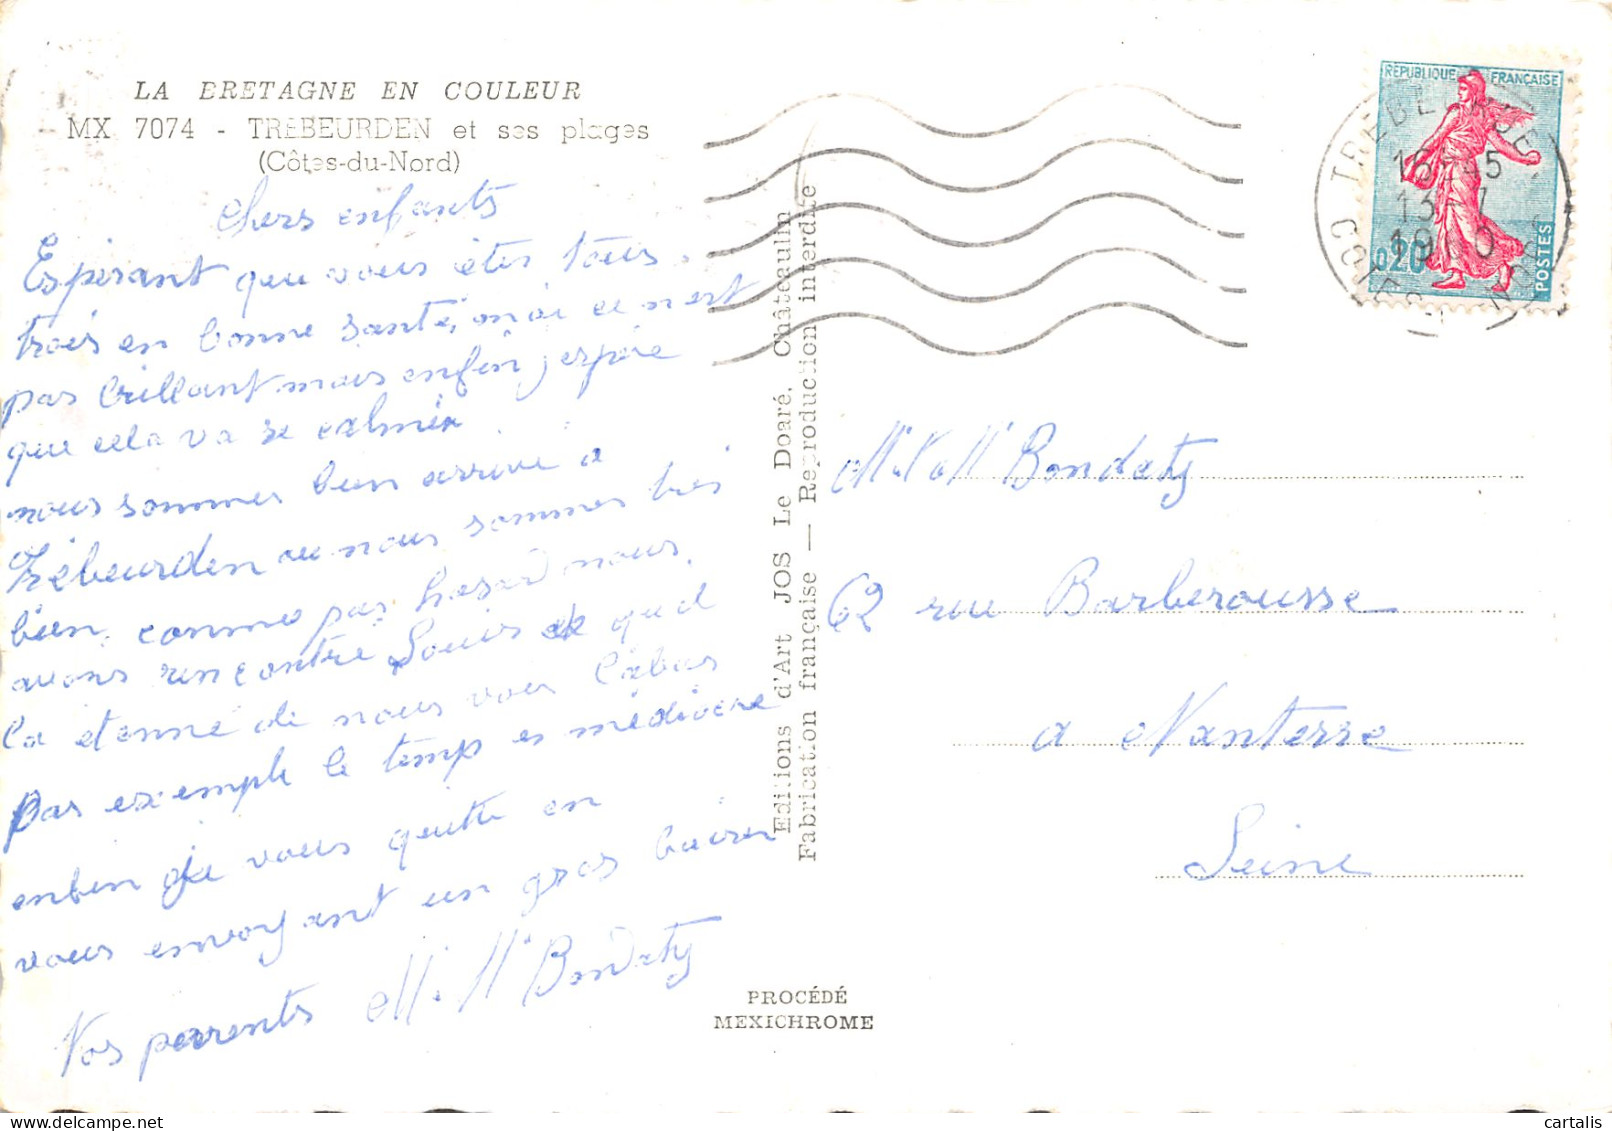 LA BRETAGNE EN COULEUR
MX 7074 - TREBEURDEN et ses plages
(Côtes-du-Nord)
chers enfants
Espérant que vous êtes tous
trois en bonne santé, moi ce n'est
pas brillant mais enfin j'espère
que cela va se calmer
nous sommes bien arrivé a
Trébeurden ou nous sommes très
bien, comme par hasard nous
avons rencontré Louis
la etenné de nous voir
par exemple le temps es médiocre
enfin je vous quitte en
vous envoyant un gros baiser
Vos parents M. Mᵉ Bondaty
Editions d'Art JOS Le Doaré, Châteaulin
Fabrication française — Reproduction interdite
PROCÉDÉ
MEXICHROME
REPUBLIQUE FRANÇAISE
0,20
POSTES
TREBEURDEN
16-45
13-7
1960
COTES DU NORD
Mʳ & Mᵉ Bondaty
62 rue Barberousse
a Nanterre
Seine
cartalis